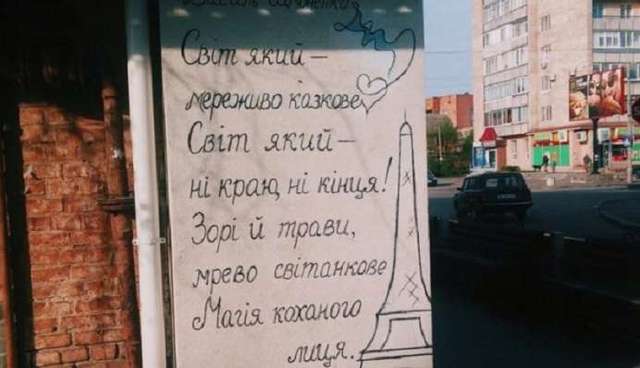 Світ який –
мереживо казкове,
Світ який –
ні краю, ні кінця!
Зорі й трави,
мрево світанкове
Магія коханого
лиця.